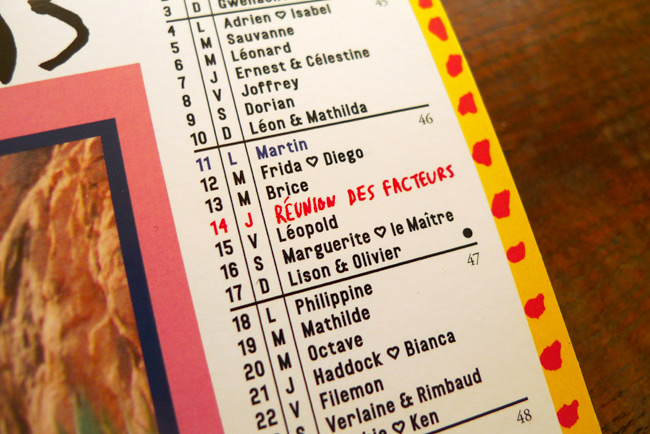 3 D
45
4 L Adrien ♡ Isabel
5 M Sauvanne
6 M Léonard
7 J Ernest & Célestine
8 V Joffrey
9 S Dorian
10 D Léon & Mathilda
11 L Martin 46
12 M Frida ♡ Diego
13 M Brice
14 J RÉUNION DES FACTEURS
15 V Léopold
16 S Marguerite ♡ le Maître
17 D Lison & Olivier ●
18 L Philippine 47
19 M Mathilde
20 M Octave
21 J Haddock ♡ Bianca
22 V Filemon
S Verlaine & Rimbaud
♡ Ken
48